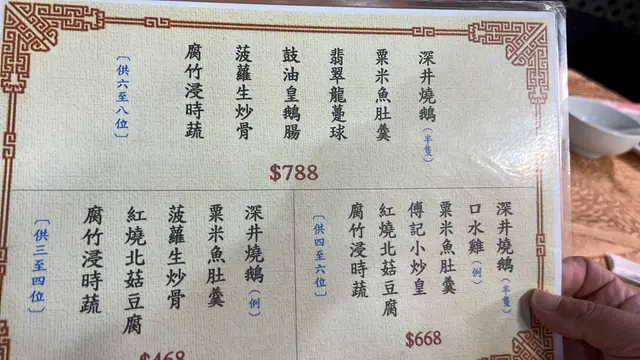 深井燒鵝（半隻）
粟米魚肚羹
翡翠龍躉球
鼓油皇鵝腸
菠蘿生炒骨
腐竹浸時蔬
〔供六至八位〕
$788
深井燒鵝（半隻）
口水雞（例）
粟米魚肚羹
傅記小炒皇
紅燒北菇豆腐
腐竹浸時蔬
〔供四至六位〕
$668
深井燒鵝（例）
粟米魚肚羹
菠蘿生炒骨
紅燒北菇豆腐
腐竹浸時蔬
〔供三至四位〕
$468